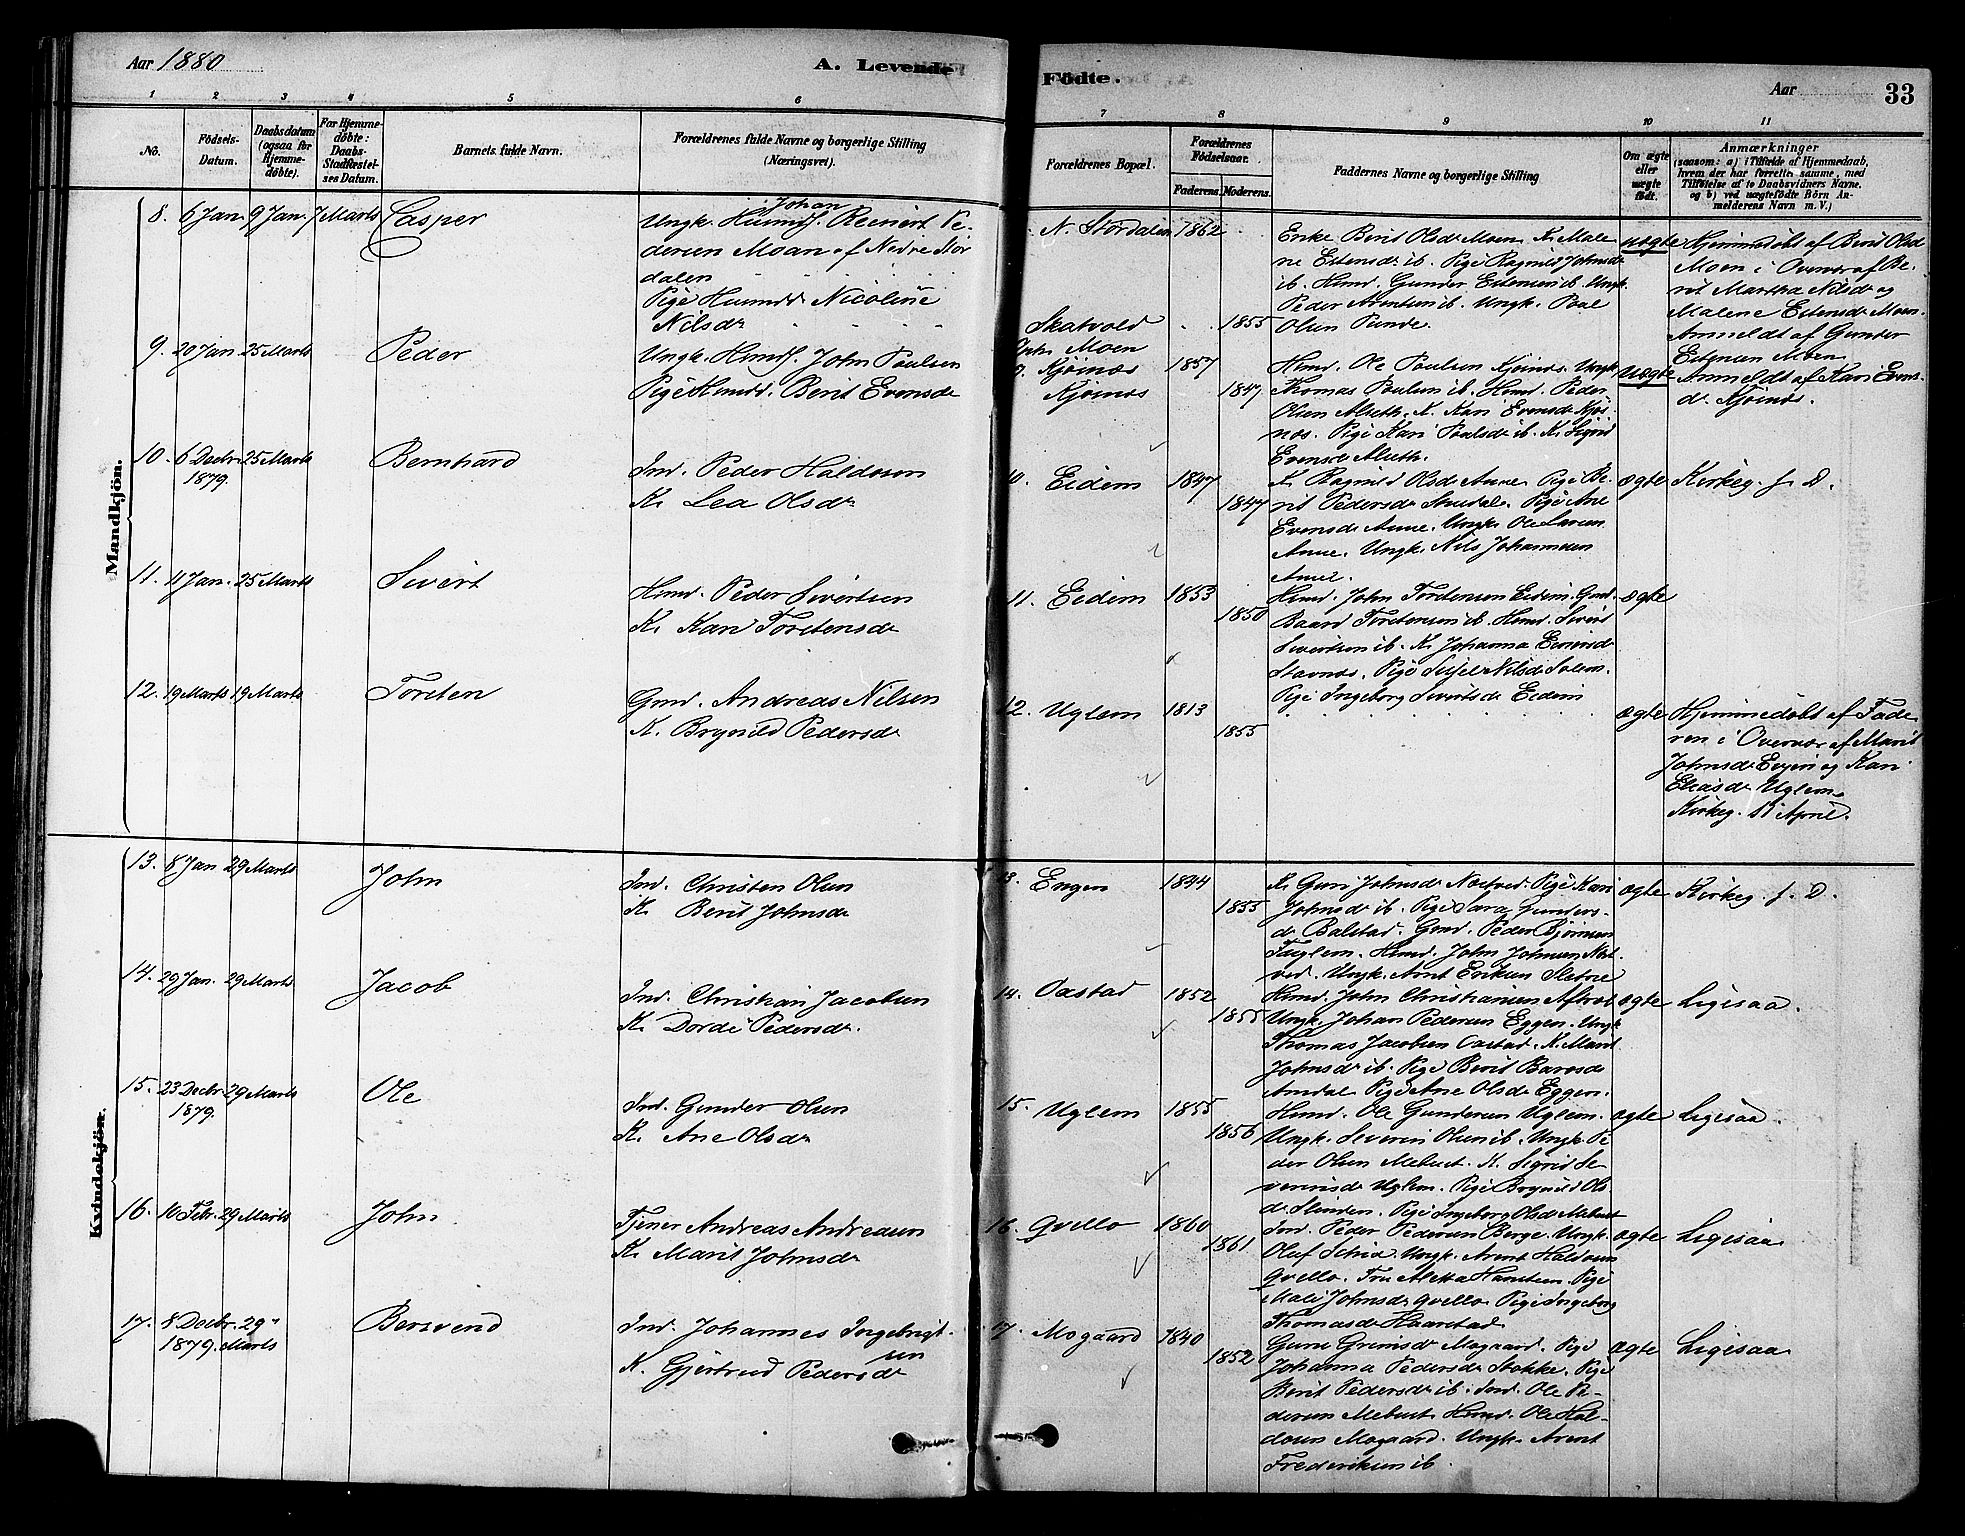 Aar 1880
A. Levende
Födte.
Aar
33
1 2 3 4 5 6 7 8 9 10 11
No.
Födsels-
Datum.
Daabsdatum
(ogsaa for
Hjemme-
döbte).
For Hjemme-
döbte:
Daabs-
Stadfæstel-
ses Datum.
Barnets fulde Navn.
Forældrenes fulde Navne og borgerlige Stilling
(Næringsvei).
Forældrenes Bopæl.
Forældrenes
Födselsaar.
Faderens. Moderens.
Faddernes Navne og borgerlige Stilling
Om ægte
eller
uægte
födt.
Anmærkninger
(saasom: a) i Tilfælde af Hjemmedaab,
hvem der har forrettet samme, med
Tilföielse af to Daabsvidners Navne.
og b) ved uægtefödte Börn An-
melderens Navn m. V.)
Mandkjön.
8. 6 Jan. 9 Jan. 7 Marts Casper
Johan
Ungk. Huusmdf. Reinert Pe-
dersen Moan af Nedre Stør
dalen
Pige Huusmdd. Nicoline
Nilsdr
N. Stördalen 1862
Skatvold 1855
Enke Berit Olsdr Moen. K. Male
ne Estensdr ib. Pige Ragnild Johnsdr
ib. Husmd. Gunder Estensen ib. Ungk.
Peder Arentsen ib. Ungk. Paal
Olsen Punde.
uægte
Hjemmedøbt af Berit Olsdr
Moen i Overvær af Be-
rit Martha Nilsdr og
Malene Estensdr Moen.
Anmeldt af Gunder
Estensen Moen
9. 20 Jan. 25 Marts Peder
Ungk. Husmdf. John Paulsen
Pige Husmdd. Berit Evensdr
Moen
9. Kjøsnæs 1857
Kjøsnæs 1847
Husmd. Ole Paulsen Kjøsnæs. Ungk.
Thomas Paulsen ib. Husmd. Peder
Olsen Aleth. K. Kari Evensdr Kjøs-
næs. Pige Kari Paulsdr ib. K. Sigrid
Evensdr Aleth.
Uægte
Anmeldt af Kari Evens-
dr Kjøsnæs.
10. 6 Decbr. 25 Marts Bernhard
1879.
Ind. Peder Haldosen
K. Lea Olsdr
10 Eidem 1847
1847
K. Ragnild Olsdr Aune. Pige Be-
rit Pedersdr Stuedal. Pige Ane
Evensdr Aune. Ungk. Ole Larsen
Aune. Ungk. Nils Johannesen
Aune.
ægte Kirkeg. s. D.
11. 11 Jan. 25 Marts Sivert
Husmd. Peder Sivertsen
K. Kari Torstensdr
11. Eidem 1853
1850
Husmd. John Torstensen Eidem. Gmd.
Baard Torstensen ib. Husmd. Sivert
Sivertsen ib. K. Johanna Evensdr
Stavnæs. Pige Sissel Nilsdr Solem.
Pige Ingeborg Sivertsdr Eidem
ægte
12. 19 Marts 19 Marts Torsten
Gmd. Andreas Nilsen
K. Brynild Pedersdr
12. Uglem 1813
1855
ægte
Hjemmedøbt af Fade
ren i Overvær af Marit
Johnsdr Evjen og Kari
Eliasdr Uglem.
Kirkeg. 11 April.
Kvindekjön.
13. 8 Jan 29 Marts John
Ind. Christen Olsen
K. Berit Johnsdr
13. Engen 1844
1855
K. Guri Johnsdr Nostved. Pige Kari
Johnsdr ib. Pige Sara Gunders-
dr Balstad. Gmd. Peder Bjørnsen
Fuglem. Husmd. John Johnsen Nost-
ved. Ungk. Arnt Eriksen Sletne
ægte Kirkeg. s. D.
14. 29 Jan. 29 Marts Jacob
Ind. Christian Jacobsen
K. Dorde Pedersdr.
14. Oastad 1852
1855
Husmd. John Christiansen Aftret
Ungk. Johan Pedersen Eggen. Ungk.
Thomas Jacobsen Oastad. K. Marit
Johnsdr ib. Pige Berit Barosdr
Amdal. Pige Ane Olsdr Eggen.
ægte Ligesaa.
15. 23 Decbr. 29 Marts Ole
1879.
Ind. Gunder Olsen
K. Ane Olsdr
15. Uglem 1855
1856
Husmd. Ole Gundersen Uglem.
Ungk. Severin Olsen ib. Ungk. Pe
der Olsen Mebust. K. Sigrid Se
verinsdr Uglem. Pige Brynild Ols
dr Slinden. Pige Ingeborg Olsdr Mebust
ægte Ligesaa.
16. 10 Febr. 29 Marts John
Tjener Andreas Andreasen
K. Marit Johnsdr
16. Qvello 1860
1861
Ind. Peder Pedersen Berge. Ungk.
Oluf Schie. Ungk. Arent Haldosen
Qvello. Fru Aletta Hansteen. Pige
Mali Johnsdr Qvello. Pige Ingeborg
Thomasdr Haarstad
ægte Ligesaa
17. 8 Decbr. 29 Bersvend
1879. Marts
Ind. Johannes Ingebrigt-
sen
K. Gjertrud Pedersdr
17. Mogaard 1840
1852
Gune Grimsdr Mogaard. Pige
Johanna Pedersdr Stokke. Pige
Berit Pedersdr ib. Ind. Ole Pe-
dersen Mebust. Husmd. Ole Hal-
dosen Mogaard. Ungk. Arent
Frederiksen ib.
ægte Ligesaa